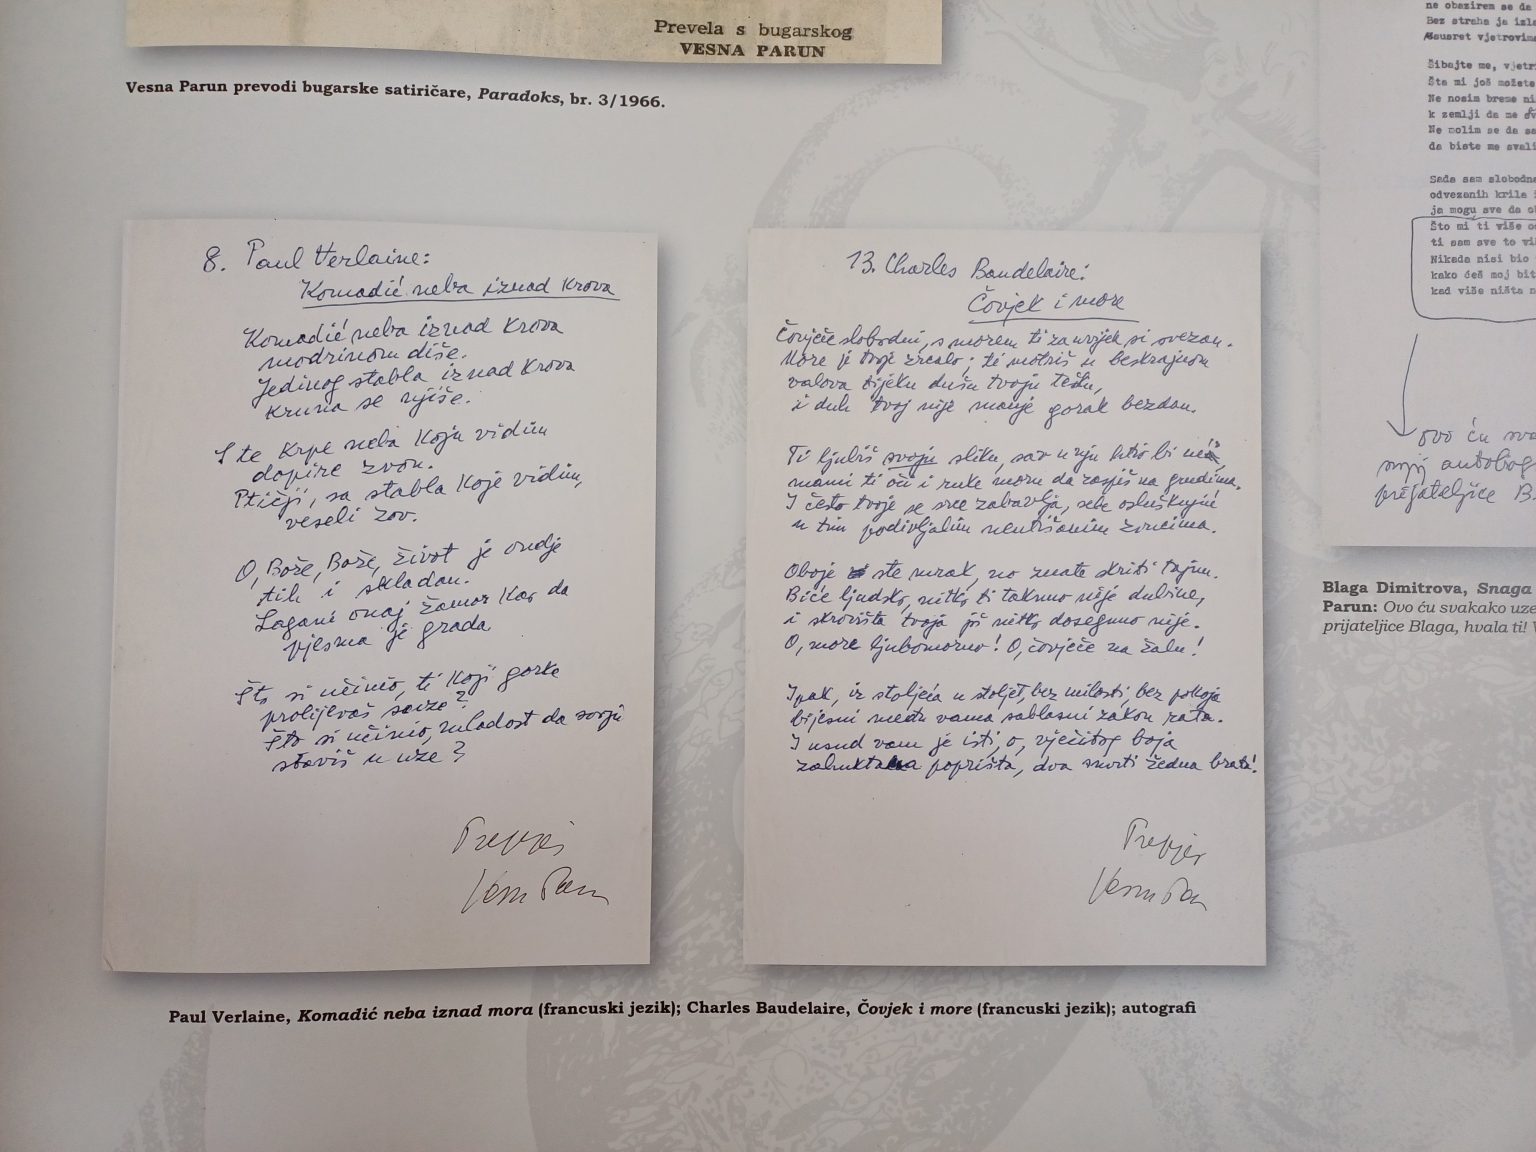 Prevela s bugarskog
VESNA PARUN
Vesna Parun prevodi bugarske satiričare, Paradoks, br. 3/1966.
8. Paul Verlaine:
Komadić neba iznad krova
Komadić neba iznad krova
modrinom diše.
Jedinog stabla iznad krova
kruna se njiše.
I te krpe neba koju vidim
dopire zvon.
Ptičji, sa stabla koje vidim,
veseli zov.
O, Bože, Bože, život je ondje
tih i skladan.
Lagani onaj žamor kao da
pjesma je grada
Što si učinio, ti koji gorke
prolijevaš suze?
Što si učinio, mladost da svoju
staviš u uze?
Prepjev
Vesna Parun
13. Charles Baudelaire:
Čovjek i more
Čovječe slobodni, s morem ti zauvijek si svezan.
More je tvoje zrcalo; ti motriš u beskrajnom
valova tijeku dušu tvoju
i duh tvoj nije manje gorak bezdan.
Ti ljubiš svoju sliku, sav u nju htio bi
mami ti oči i ruke moru da zaspiš na grudima.
I često tvoje se srce zabavlja, sebe osluškujuć
u tim podivljalim neutišanim zvucima.
Oboje ste mrak, no znate skriti tajnu.
Biće ljudsko, nitko ti taknuo nije dubine,
i skrovišta tvoja još nitko dosegnuo nije.
O, more ljubomorno! O, čovječe na žalu!
Ipak, iz stoljeća u stoljeće, bez milosti, bez pokoja
bijesni među vama sablasni zakon rata.
I usud vam je isti, o, vječitog boja
zahuktala poprišta, dva smrti žedna brata!
Prepjev
Vesna Parun
Paul Verlaine, Komadić neba iznad mora (francuski jezik); Charles Baudelaire, Čovjek i more (francuski jezik); autografi
ne obazirem se da
Bez straha ja
ususret vjetrovima
Šibajte me,
Šta mi još možete
Ne nosim breme
k zemlji da me
Ne molim se da
da biste me
Sada sam slobodna
odvezanih krila
ja mogu sve da
Što mi ti više
ti sam sve to
Nikada nisi bio
kako ćeš moj
kad više ništa
ovo ću
moj
prijateljice B.
Blaga Dimitrova, Snaga
Parun: Ovo ću svakako
prijateljice Blaga, hvala ti!